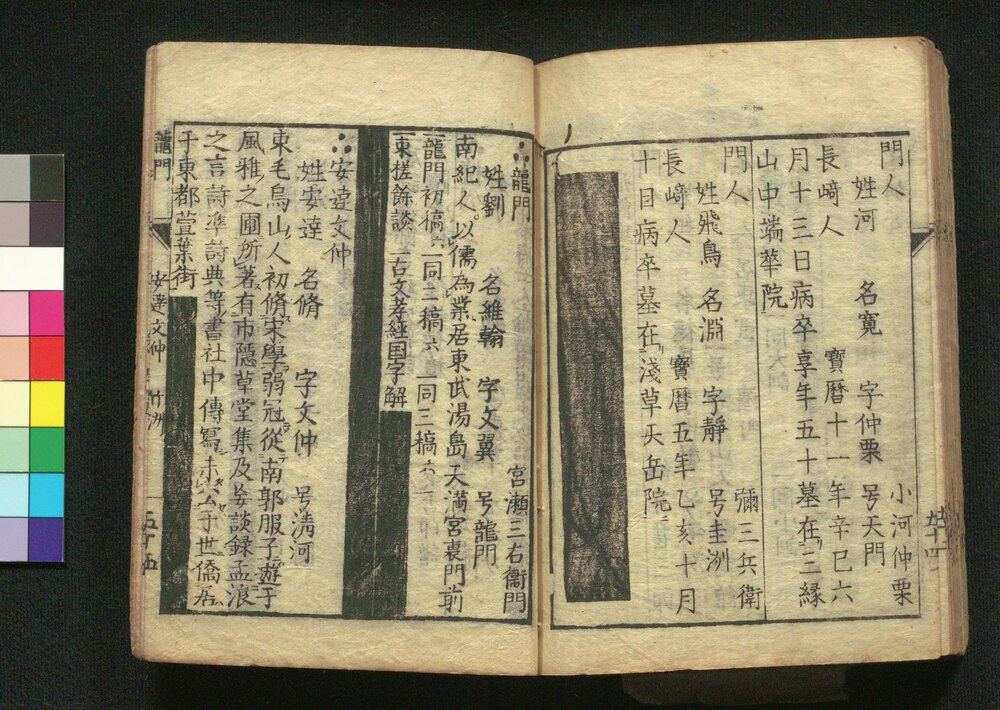 門人
姓河 名寛 字仲栗 号天門 小河仲栗
長﨑人 寳暦十一年辛巳六
月十三日病卒享年五十墓在三縁
山中端華院
門人 彌三兵衛
姓飛鳥 名淵 字靜 号圭洲
長﨑人 寳暦五年乙亥十月
十日病卒墓在淺草天岳院
龍門 宮瀬三右衞門
姓劉 名維翰 字文翼 号龍門
南紀人以儒為業居東武湯島天満宮裏門前
龍門初稿六 同二稿六 同三稿六
東槎餘談 古文孝經国字解
安達文仲
姓安達 名脩 字文仲 号清河
東毛烏山人初脩宋學弱冠從南郭服子遊于
風雅之圃所著有市隠草堂集及妄談録孟浪
之言詩準詩典等書社中傳寫未公于世僑居
于東都萱葉街
龍門
安達文仲
竹洲
五十五